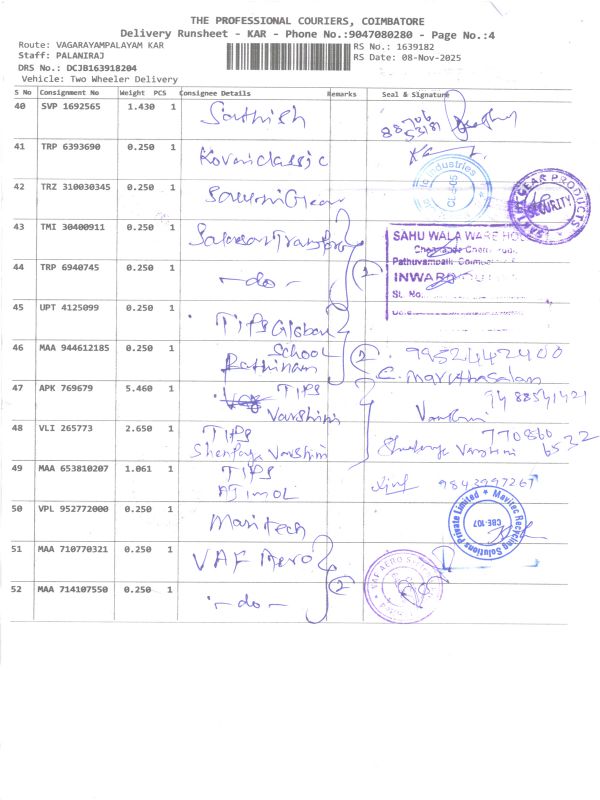 THE PROFESSIONAL COURIERS, COIMBATORE
Delivery Runsheet - KAR - Phone No.:9047080280 - Page No.:4
Route: VAGARAYAMPALAYAM KAR RS No.: 1639182
Staff: PALANIRAJ RS Date: 08-Nov-2025
DRS No.: DCJB163918204
Vehicle: Two Wheeler Delivery
S No Consignment No Weight PCS Consignee Details Remarks Seal & Signature
40 SVP 1692565 1.430 1 Sathish 88706 53181
41 TRP 6393690 0.250 1 Kovai classic
42 TRZ 310030345 0.250 1 Industries CBE-05
GEAR PRODUCTS SECURITY
43 TMI 30400911 0.250 1 SAHU WALA WARE HO
Pathuvampalli
44 TRP 6940745 0.250 1 -do- 1 INWARD
Sl. No.
45 UPT 4125099 0.250 1 TIPS Global
46 MAA 944612185 0.250 1 School Rathinam 2 9952442400
47 APK 769679 5.460 1 TIPS Varshini Varshini 9488541421
48 VLI 265773 2.650 1 TIPS Varshini 770860 6532
49 MAA 653810207 1.061 1 TIPS 9843997267
50 VPL 952772000 0.250 1 Maritech Mavitec Recycling Solutions Private Limited CBE-107
51 MAA 710770321 0.250 1 VAF Aero VAF AERO
52 MAA 714107550 0.250 1 -do- 2